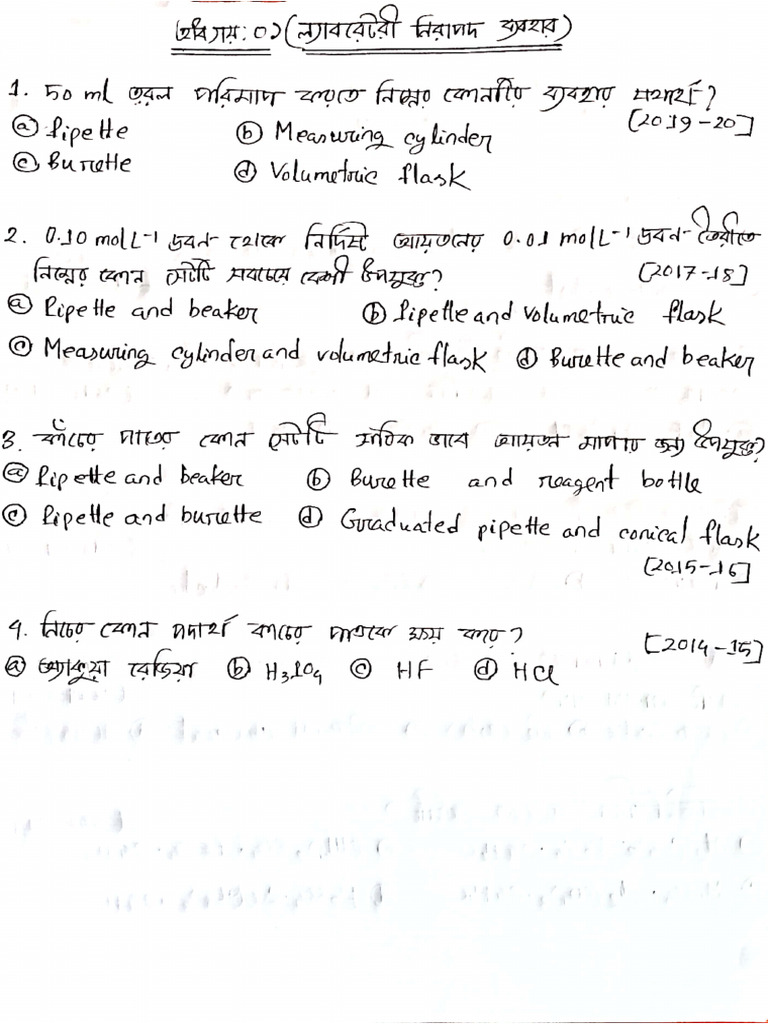 অধ্যায়: ০১ (ল্যাবরেটরী নিরাপদ ব্যবহার)
1. 50 ml তরল পরিমাপ করতে নিম্নের কোনটির ব্যবহার যথার্থ?
[2019-20]
ⓐ Pipette ⓑ Measuring cylinder
ⓒ Burette ⓓ Volumetric flask
2. 0.10 mol L⁻¹ দ্রবন থেকে নির্দিষ্ট আয়তনের 0.01 mol L⁻¹ দ্রবন তৈরীতে
নিম্নের কোন সেটটি সবচেয়ে বেশী উপযুক্ত? [2017-18]
ⓐ Pipette and beaker ⓑ Pipette and volumetric flask
ⓒ Measuring cylinder and volumetric flask ⓓ Burette and beaker
3. কাঁচের পাত্রের কোন সেটটি সঠিক ভাবে আয়তন মাপার জন্য উপযুক্ত?
ⓐ Pipette and beaker ⓑ Burette and reagent bottle
ⓒ Pipette and burette ⓓ Graduated pipette and conical flask
[2015-16]
৪. নিচের কোন পদার্থ কাচের পাত্রকে ক্ষয় করে? [2014-15]
ⓐ অ্যাকুয়া রেজিয়া ⓑ H₃PO₄ ⓒ HF ⓓ HCl